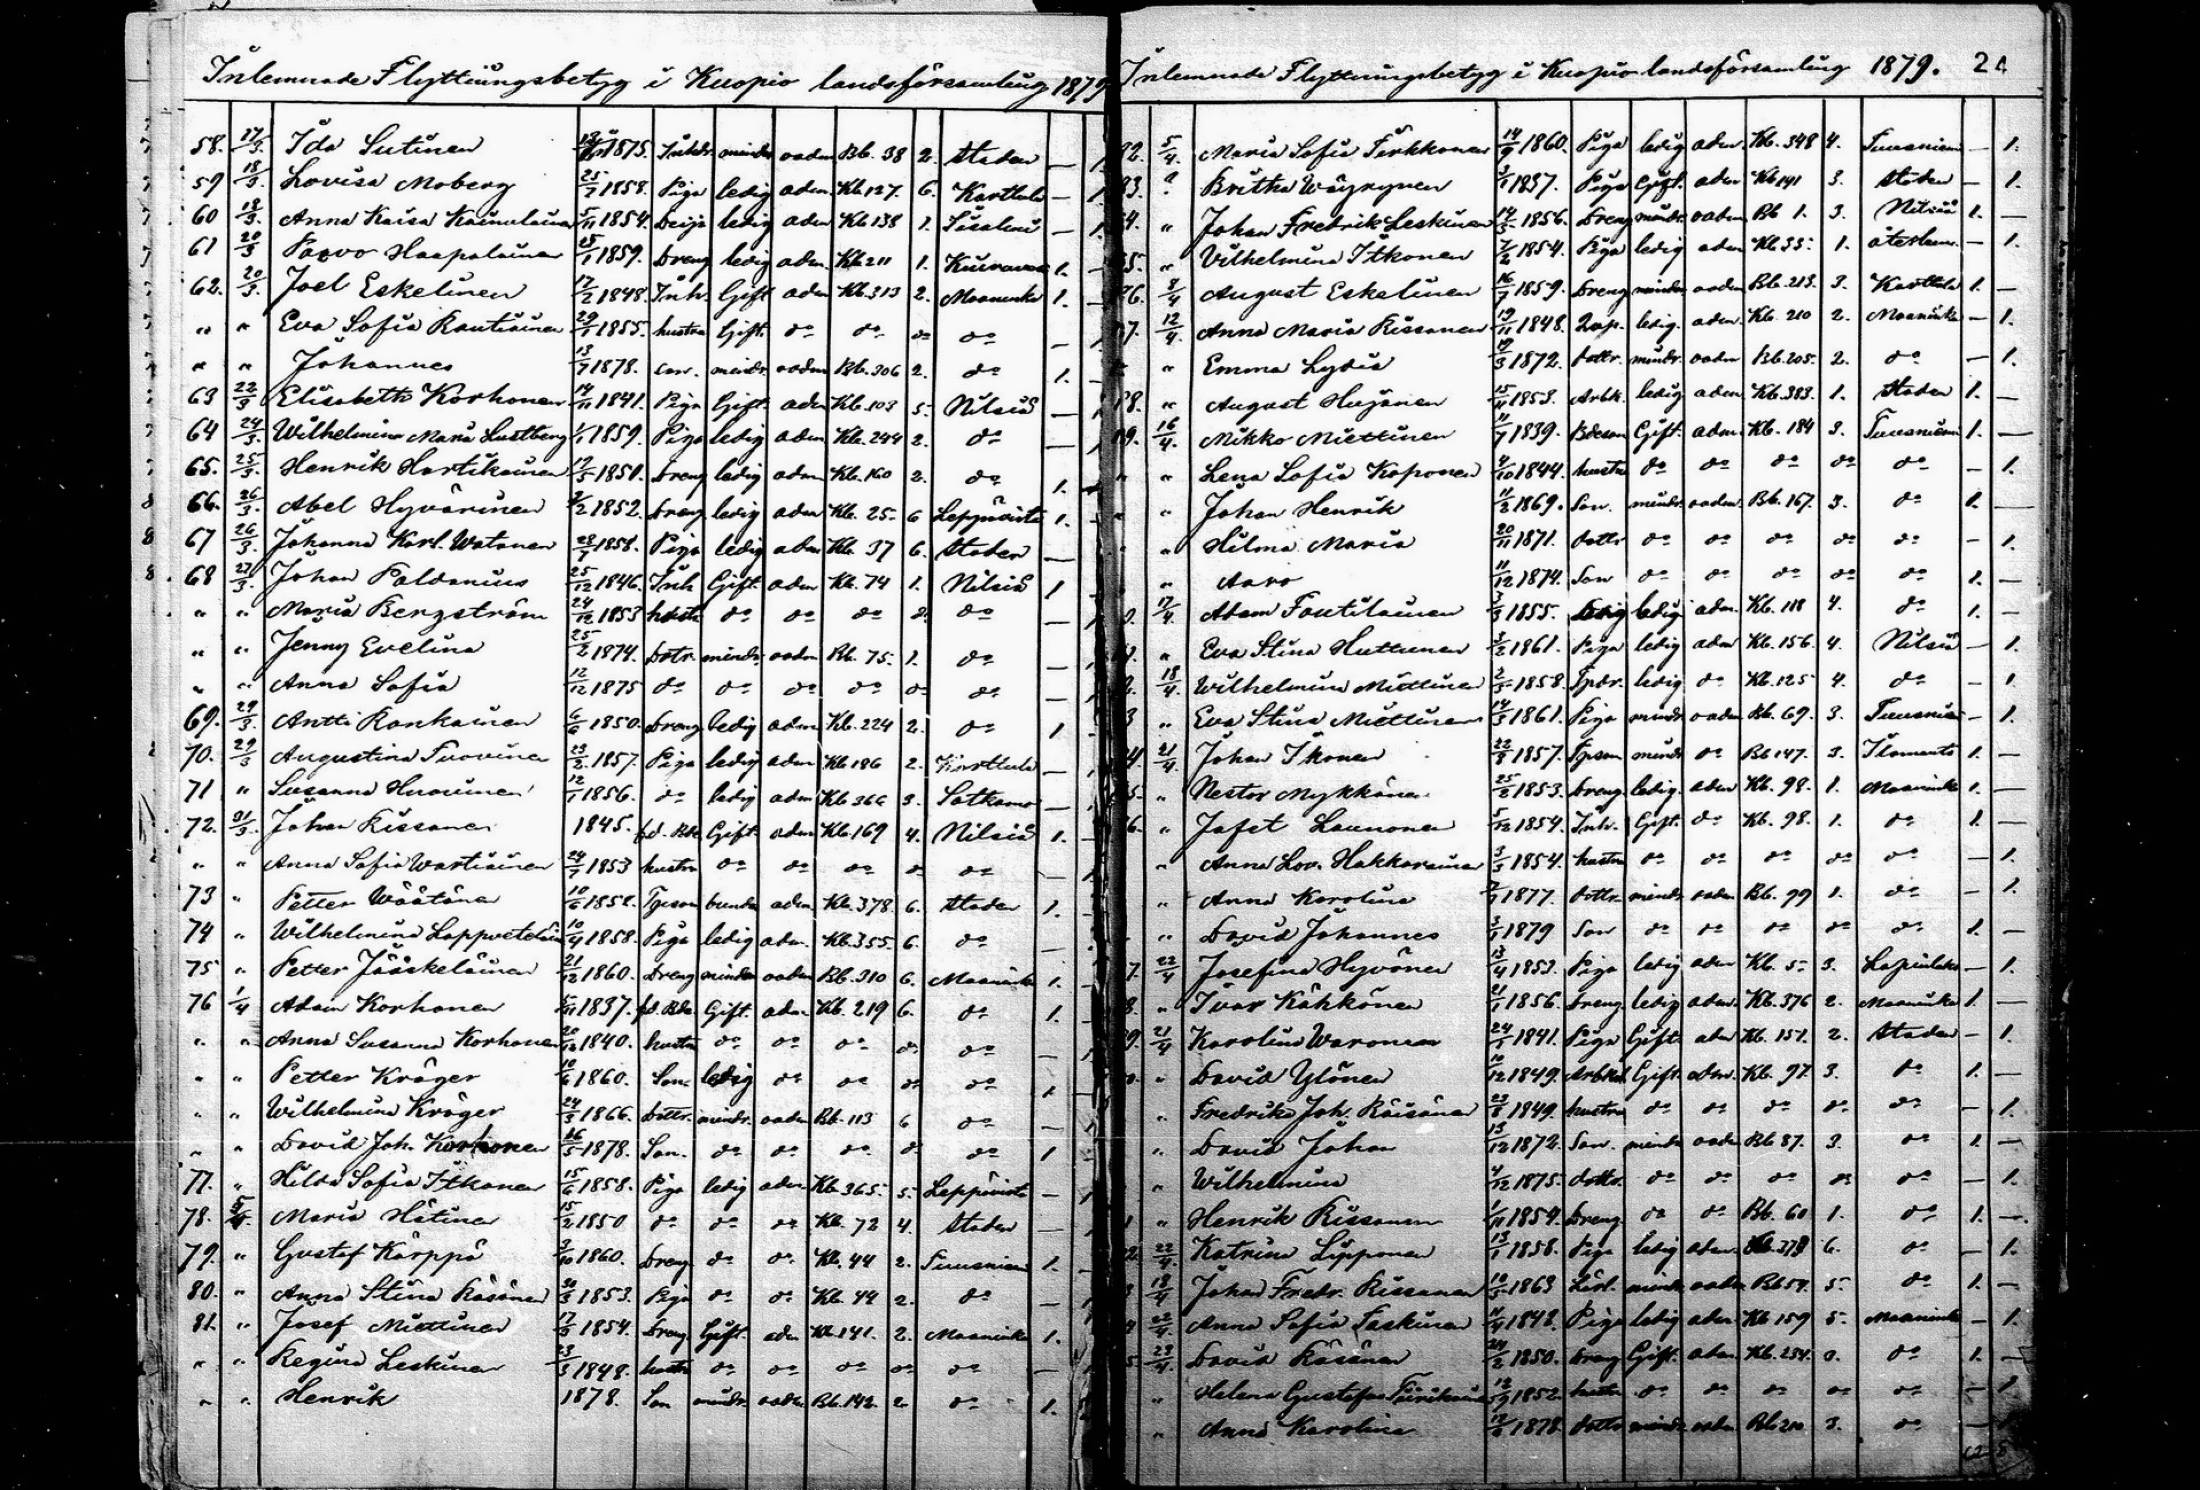 Inlemnade Flyttningsbetyg i Kuopio landsförsamling 1879
58. 17/3. Ida Sutinen 1875. mindr oadm Bb. 38 2. staden —
59 18/3. Lovisa Moberg 25/7 1858. Piga ledig adm. Kb 127. 6. Karttula —
60 18/3. Anna Kaisa 5/11 1854. ledig adm Kb 138 1. Iisalmi —
61 20/3 Paavo Haapalainen 25/1 1859. Dreng ledig adm. Kb 211 1. 1.
62. 20/3. Joel Eskelinen 17/2 1848. Inh. Gift adm Kb. 313 2. Maaninka 1.
" " Eva Sofia Rautiainen 29/1 1855. hustru Gift. do do do do —
" " Johannes 13/7 1878. son. mindr. oadm Bb. 306 2. do 1.
63 22/3 Elisabeth Korhonen 14/11 1841. Piga Gift. adm Kb. 103 5. Nilsiä —
64 24/3. Wilhelmina Maria Lustberg 1/1 1859. Piga ledig adm Kb. 244 2. do —
65. 25/3. Henrik Hartikainen 19/5 1851. Dreng ledig adm Kb. 160 2. do 1.
66. 26/3. Abel Hyvärinen 2/2 1852. Dreng ledig adm Kb. 25 6 Leppävirta 1.
67 26/3. Johanna Karl. Watanen 28/7 1858. Piga ledig adm Kb. 37 6. staden —
68 27/3. Johan Paldanius 25/12 1846. Inh Gift. adm Kb. 74 1. Nilsiä 1
" " Maria Bergström 24/12 1853 hustru do do do do do —
" " Jenny Evelina 25/2 1874. Dotr. mindr oadm Bb. 75. 1. do —
" " Anna Sofia 12/12 1875 do do do do do do —
69. 29/3. Antti Rankainen 6/6 1850. Dreng ledig adm. Kb. 224 2. do 1
70. 29/3 Augustina Tuovinen 23/2 1857. Piga ledig adm Kb 186 2. Karttula —
71 " Susanna 12/1 1856. do ledig adm Kb 366 3. Sotkamo —
72. 31/3. Johan Rissanen 1845. fd. Bde Gift. adm Kb. 169 4. Nilsiä 1.
" " Anna Sofia Wartiainen 24/7 1853 hustru do do do do do —
73 " Petter Väätäinen 10/6 1858. Tpson adm. Kb. 378. 6. staden 1.
74 " Wilhelmina Lappveteläinen 10/4 1858. Piga ledig adm. Kb. 355. 6. do —
75 " Petter Jääskeläinen 21/12 1860. Dreng mindr oadm Bb. 310 6. Maaninka 1.
76 1/4 Adam Korhonen 1837. fd. Bde. Gift. adm Kb. 219 6. do 1.
" " Anna Susanna Korhonen 20/12 1840. hustru do do do do do —
" " Petter Kröger 10/6 1860. Son. ledig do do do do 1
" " Wilhelmina Kröger 24/3 1866. Dottr. mindr. oadm Bb. 113 6 do —
" " David Joh. Korhonen 16/5 1878. Son. do do do do do 1
77. " Hilda Sofia Itkonen 15/6 1858. Piga ledig adm. Kb 365. 5. Leppävirta —
78. 5/4. Maria Hätinen 15/2 1850 do do do Kb. 72 4. staden —
79. " Gustaf Kärppä 3/10 1860. Dreng do do Kb. 44 2. Tuusniemi 1.
80. " Anna Stina Räsänen 30/3 1853. Piga do do Kb. 44 2. do —
81. " Josef Miettinen 17/3 1854. Dreng Gift. adm Kb 141. 2. Maaninka 1.
" " Regina Leskinen 23/3 1848. hustru do do do do do —
" " Henrik 1878. Son mindr. oadm Bb. 142. 2. do 1.
Inlemnade Flyttningsbetyg i Kuopio landsförsamling 1879. 21
82. 5/4. Maria Sofia Pirkkonen 14/9 1860. Piga ledig adm. Kb. 348 4. Tuusniemi — 1.
83. Britha Wäyrynen 1837. Piga Gift. adm Kb 141 3. staden — 1.
84. " Johan Fredrik Leskinen 14/3 1856. Dreng mindr. oadm Bb 1. 3. Nilsiä 1. —
85. " Vilhelmina Itkonen 7/2 1854. Piga ledig adm Kb 35. 1. — 1.
86. 8/4 August Eskelinen 16/7 1859. Dreng mindr. oadm Bb. 213. 3. Karttula 1. —
87. 12/4. Anna Maria Rissanen 19/11 1848. ledig. adm. Kb. 210 2. Maaninka — 1.
" Emma Lydia 19/3 1872. dottr. mindr. oadm Bb. 205. 2. do — 1.
88. " August Hujanen 15/11 1853. Arbk. ledig adm Kb. 383. 1. staden 1. —
89. 16/4. Mikko Miettinen 11/7 1839. Bdeson Gift. adm. Kb. 184 3. Tuusniemi 1. —
" " Lena Sofia Koponen 4/10 1844. hustru do do do do do — 1.
" Johan Henrik 11/2 1869. Son. mindr. oadm. Bb. 167. 3. do 1. —
" Hilma Maria 20/11 1871. dottr do do do do do — 1.
" Aaro 11/12 1874. Son do do do do do 1. —
17/4. Adam Tontilainen 3/3 1855. ledig adm. Kb. 118 4. do 1. —
" Eva Stina Huttunen 3/2 1861. Piga ledig adm Kb. 156 4. Nilsiä — 1.
18/4. Wilhelmina Miettinen 2/3 1858. Tpdr. ledig do Kb. 125 4. do — 1
3 " Eva Stina Miettinen 14/3 1861. Piga mindr oadm Bb. 69. 3. Tuusniemi — 1.
4. 21/4. Johan Ikonen 22/8 1857. Tpson mindr do Bb 147. 3. Ilomants 1. —
5. " Nestor Mykkänen 25/2 1853. Dreng ledig. adm Kb. 98. 1. Maaninka 1. —
6. " Jafet Launonen 5/12 1854. Inh. Gift. do Kb. 98. 1. do 1. —
" Anna Lov. Hakkarainen 3/3 1854. hustru do do do do do — 1.
" Anna Karolina 1877. dottr. mindr oadm Bb. 99 1. do — 1.
" David Johannes 1879 Son do do do do do 1. —
7. 22/4 Josefina Hyvönen 13/4 1853. Piga ledig adm Kb. 5 3. Lapinlaks — 1.
8. " Ivar Kähkönen 21/1 1856. Dreng ledig adm. Kb. 376 2. Maaninka 1. —
9. 21/4 Karolina Waronen 24/1 1841. Piga Gift. adm Kb. 151. 2. staden — 1.
" David Ylönen 10/12 1849. Gift. adm. Kb. 97. 3. do 1. —
" Fredrika Joh. Räisänen 23/8 1849. hustru do do do do do — 1.
" David Johan 13/12 1872. Son. mindr oadm Bb 87. 3. do 1. —
" Wilhelmina 4/12 1875. dottr. do do do do do — 1.
1 " Henrik Rissanen 1/11 1854. Dreng. do do Bb. 60 1. do 1. —
2. 22/4. Katrina Lipponen 13/1 1858. Piga ledig adm. Kb. 378 6. do — 1.
3 18/4 Johan Fredr. Rissanen 10/5 1863 Lärl. mindr oadm Bb 59. 5. do 1. —
4 22/4. Anna Sofia Taskinen 11/4 1848. Piga ledig adm Kb 159 5. Maaninka — 1.
5. 23/4. David Räsänen 24/2 1850. Dreng Gift. adm. Kb. 254. do 1. —
" Helena Gustafva 1852. hustru do do do do do — 1
" Anna Karolina 1878. dottr mindr oadm Bb 210 3. do — 1